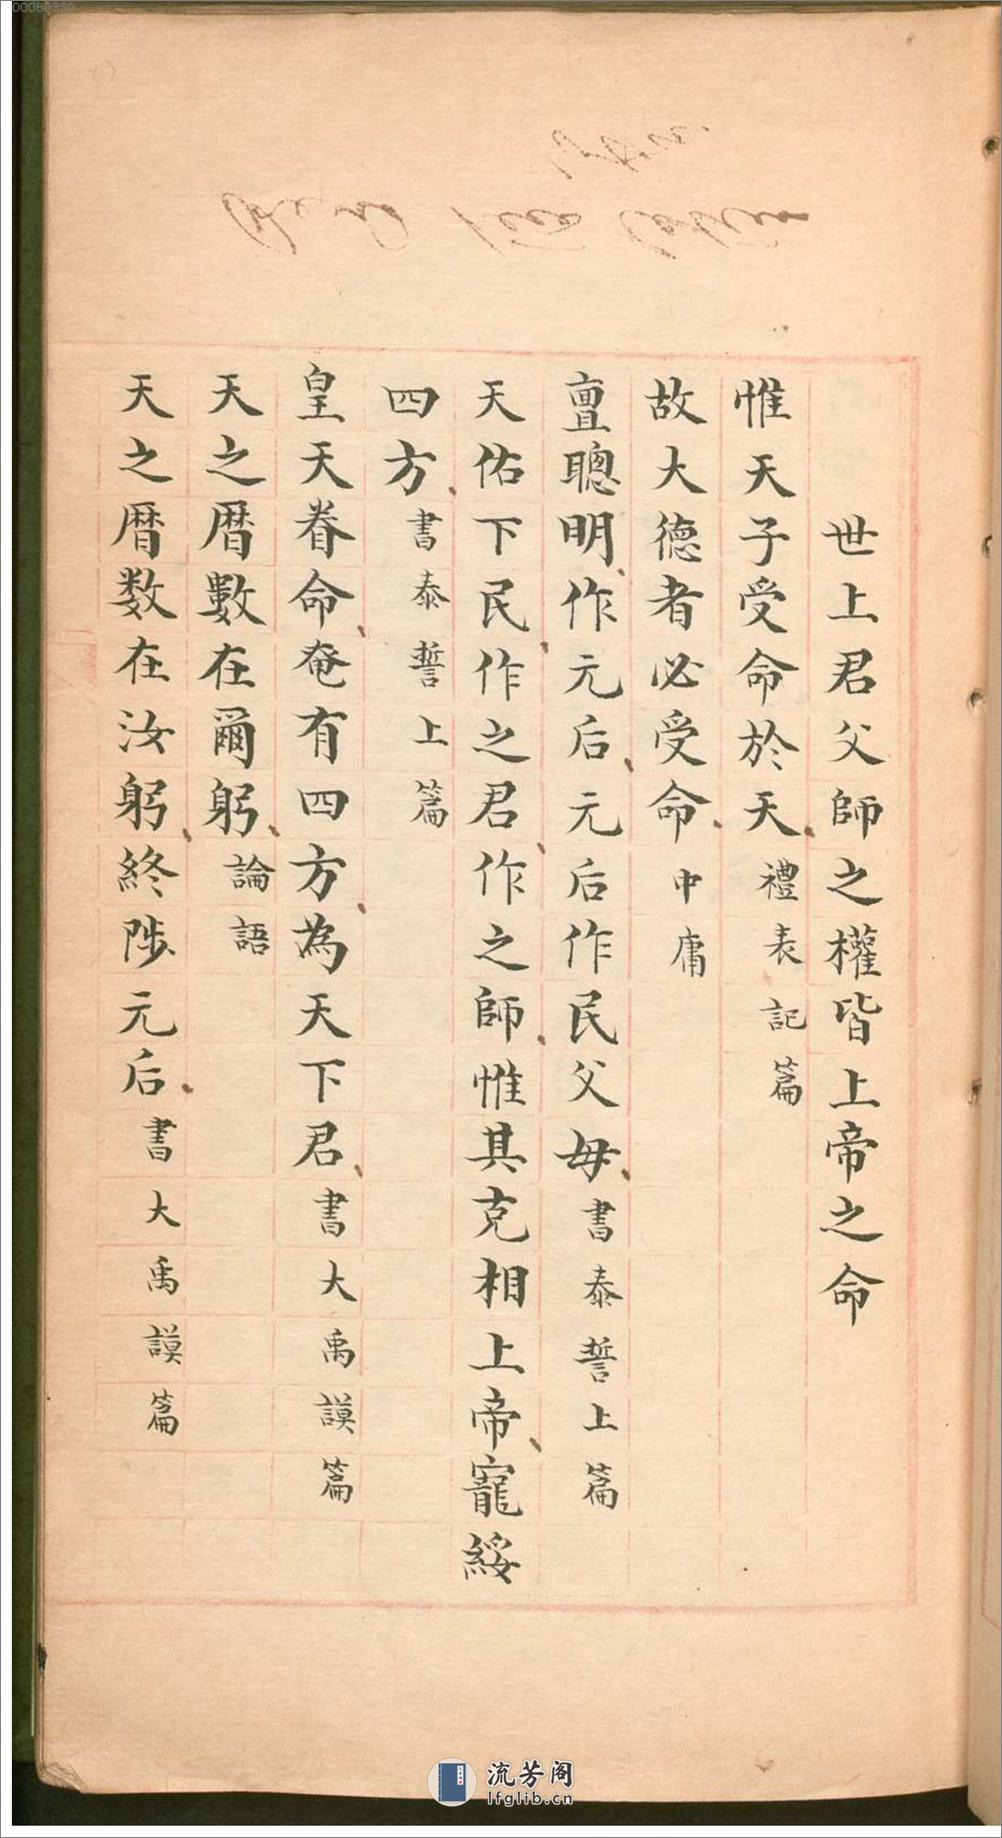 世上君父師之權皆上帝之命
惟天子受命於天、禮表記篇
故大德者必受命、中庸
亶聰明、作元后、元后作民父母、書泰誓上篇
天佑下民、作之君、作之師、惟其克相上帝、寵綏
四方、書泰誓上篇
皇天眷命、奄有四方、為天下君、書大禹謨篇
天之曆數在爾躬、論語
天之曆数在汝躬、終陟元后、書大禹謨篇
流芳阁
lfglib.cn